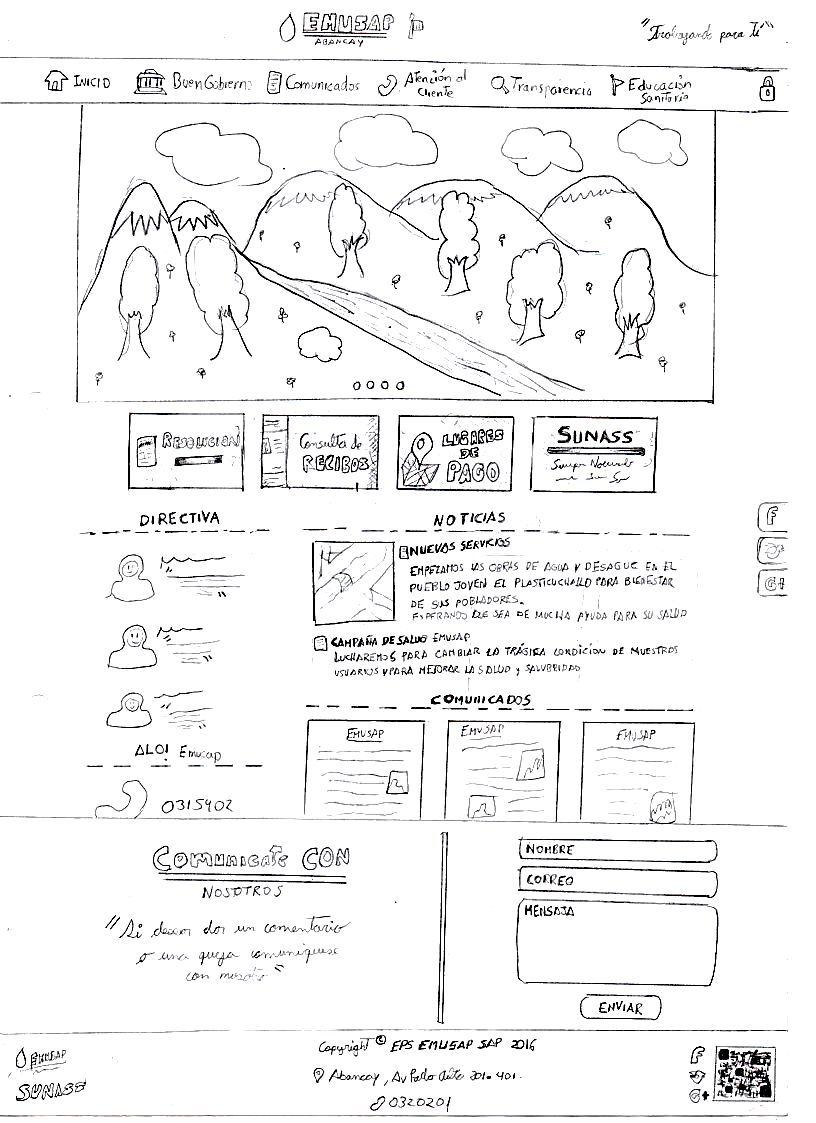 EMUSAP
ABANCAY
"Trabajando para Ti"
INICIO
Buen Gobierno
Comunicados
Atención al
Cliente
Transparencia
Educación
Sanitaria
RESOLUCION
Consulta de
RECIBOS
LUGARES
DE
PAGO
SUNASS
DIRECTIVA
NOTICIAS
NUEVOS SERVICIOS
EMPEZAMOS LAS OBRAS DE AGUA Y DESAGUE EN EL
PUEBLO JOVEN EL PLASTICUCHALLO PARA BIENESTAR
DE SUS POBLADORES.
ESPERANDO QUE SEA DE MUCHA AYUDA PARA SU SALUD
CAMPAÑA DE SALUD EMUSAP
LUCHAREMOS PARA CAMBIAR LA TRÁGICA CONDICION DE NUESTROS
USUARIOS Y PARA MEJORAR LA SALUD Y SALUBRIDAD
COMUNICADOS
EMUSAP
EMUSAP
EMUSAP
ALO! Emusap
0315402
f
G+
COMUNICATE CON
NOSOTROS
"Si desean dar un comentario
o una queja comuniquese
con nosotros"
NOMBRE
CORREO
MENSAJA
ENVIAR
EMUSAP
SUNASS
Copyright © EPS EMUSAP SAP 2016
Abancay, Av
0320201
f
G+